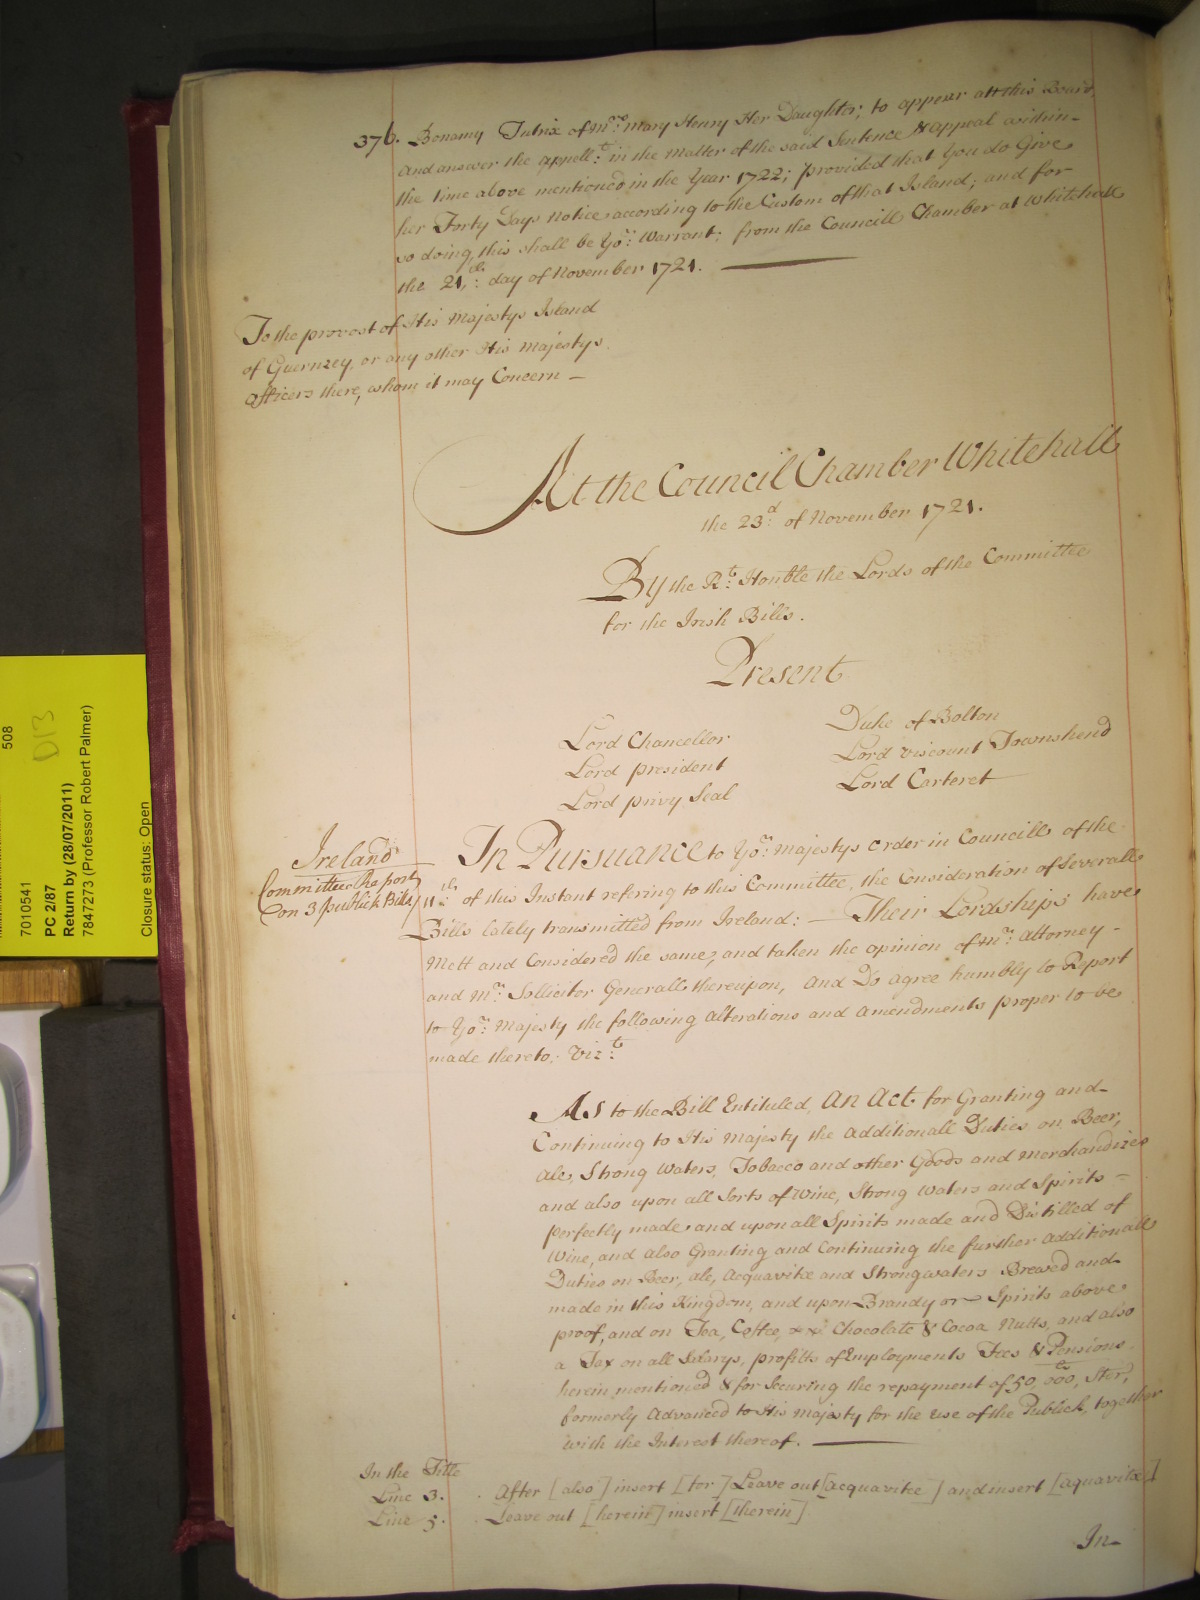 376. Bonamy Tutrix of Mrs: Mary Henry Her Daughter; to appear att this Board,
And answer the appellt: in the Matter of the said Sentence & appeal within-
the time above mentioned in the Year 1722; provided that You do Give
her Forty Days Notice according to the Custom of that Island; and for
so doing, this shall be Yor: Warrant; from the Councill Chamber at Whitehall
the 21th: day of November 1721.
To the provost of His Majestys Island
of Guernzey, or any other His Majestys
Officers there, whom it may Concern -
At the Council Chamber Whitehall
the 23d: of November 1721.
By the Rt: Honble the Lords of the Committee
for the Irish Bills.
Present
Lord Chancellor
Lord president
Lord privy Seal
Duke of Bolton
Lord Viscount Townshend
Lord Carteret
Ireland
Committee Report
on 3 publick Bills
In Pursuance to Yor: Majestys Order in Councill of the
11th: of this Instant refering to this Committee, the Consideration of Severall
Bills lately transmitted from Ireland: — Their Lordships have
Mett and Considered the same, and taken the opinion of Mr: Attorney -
and Mr: Sollicitor Generall thereupon, And Do agree humbly to Report
to Yor: Majesty the following Alterations and Amendments proper to be
made thereto; Vizt:
As to the Bill Entituled, An Act for Granting and
Continuing to His Majesty the Additionall Duties on Beer,
Ale, Strong Waters, Tobacco and other Goods and Merchandizes
and also upon all Sorts of Wine, Strong Waters and Spirits =
perfectly made, and upon all Spirits made and Distilled of
Wine, and also Granting and Continuing the further Additionall
Duties on Beer, ale, Acquavitæ and Strongwaters Brewed and
made in this Kingdom, and upon Brandy or Spirits above
proof, and on Tea, Coffee, Chocolate & Cocoa Nutts, and also
a Tax on all Salarys, profitts of Employments Fees & Pensions
herein mentioned & for Securing the repayment of 50,000, Ster,
formerly Advanced to His Majesty for the use of the Publick, together
with the Interest thereof.
In the Title
Line 3. After [also] insert [for] Leave out [acquavitæ] and insert [aquavitæ]
Line 5. Leave out [herein] insert [therein]
In
508
D13
7010541
PC 2/87
Return by (28/07/2011)
7847273 (Professor Robert Palmer)
Closure status: Open